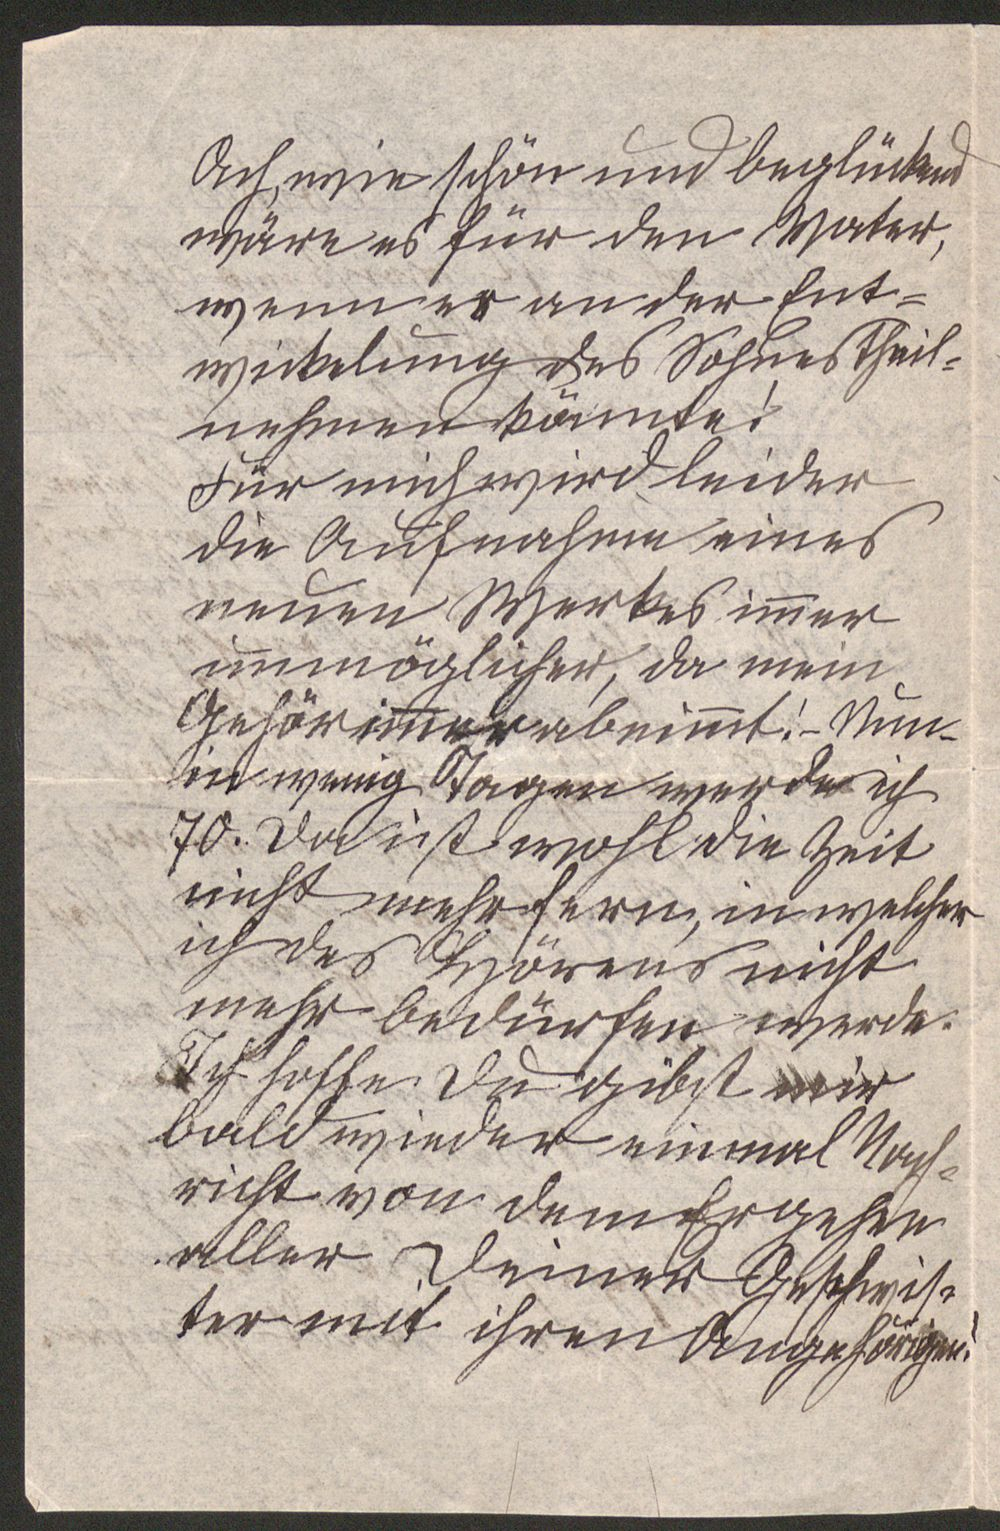 Ach, wie schön und beglückend
wäre es für den Vater,
wenn er an der Ent=
wickelung des Sohnes Theil=
nehmen könnte!
Für mich wird leider
die Aufnahme eines
neuen Werkes im̅er
unmöglicher, da mein
Gehör immer abnim̅t! - Nun -
in wenig Tagen werde ich
70. Da ist wohl die Zeit
nicht mehr fern, in welcher
ich des Hörens nicht
mehr bedürfen werde.
Ich hoffe Du gibst mir
bald wieder einmal Nach=
richt von dem Ergehen
aller Deiner Geschwis=
ter mit ihren Angehörigen!